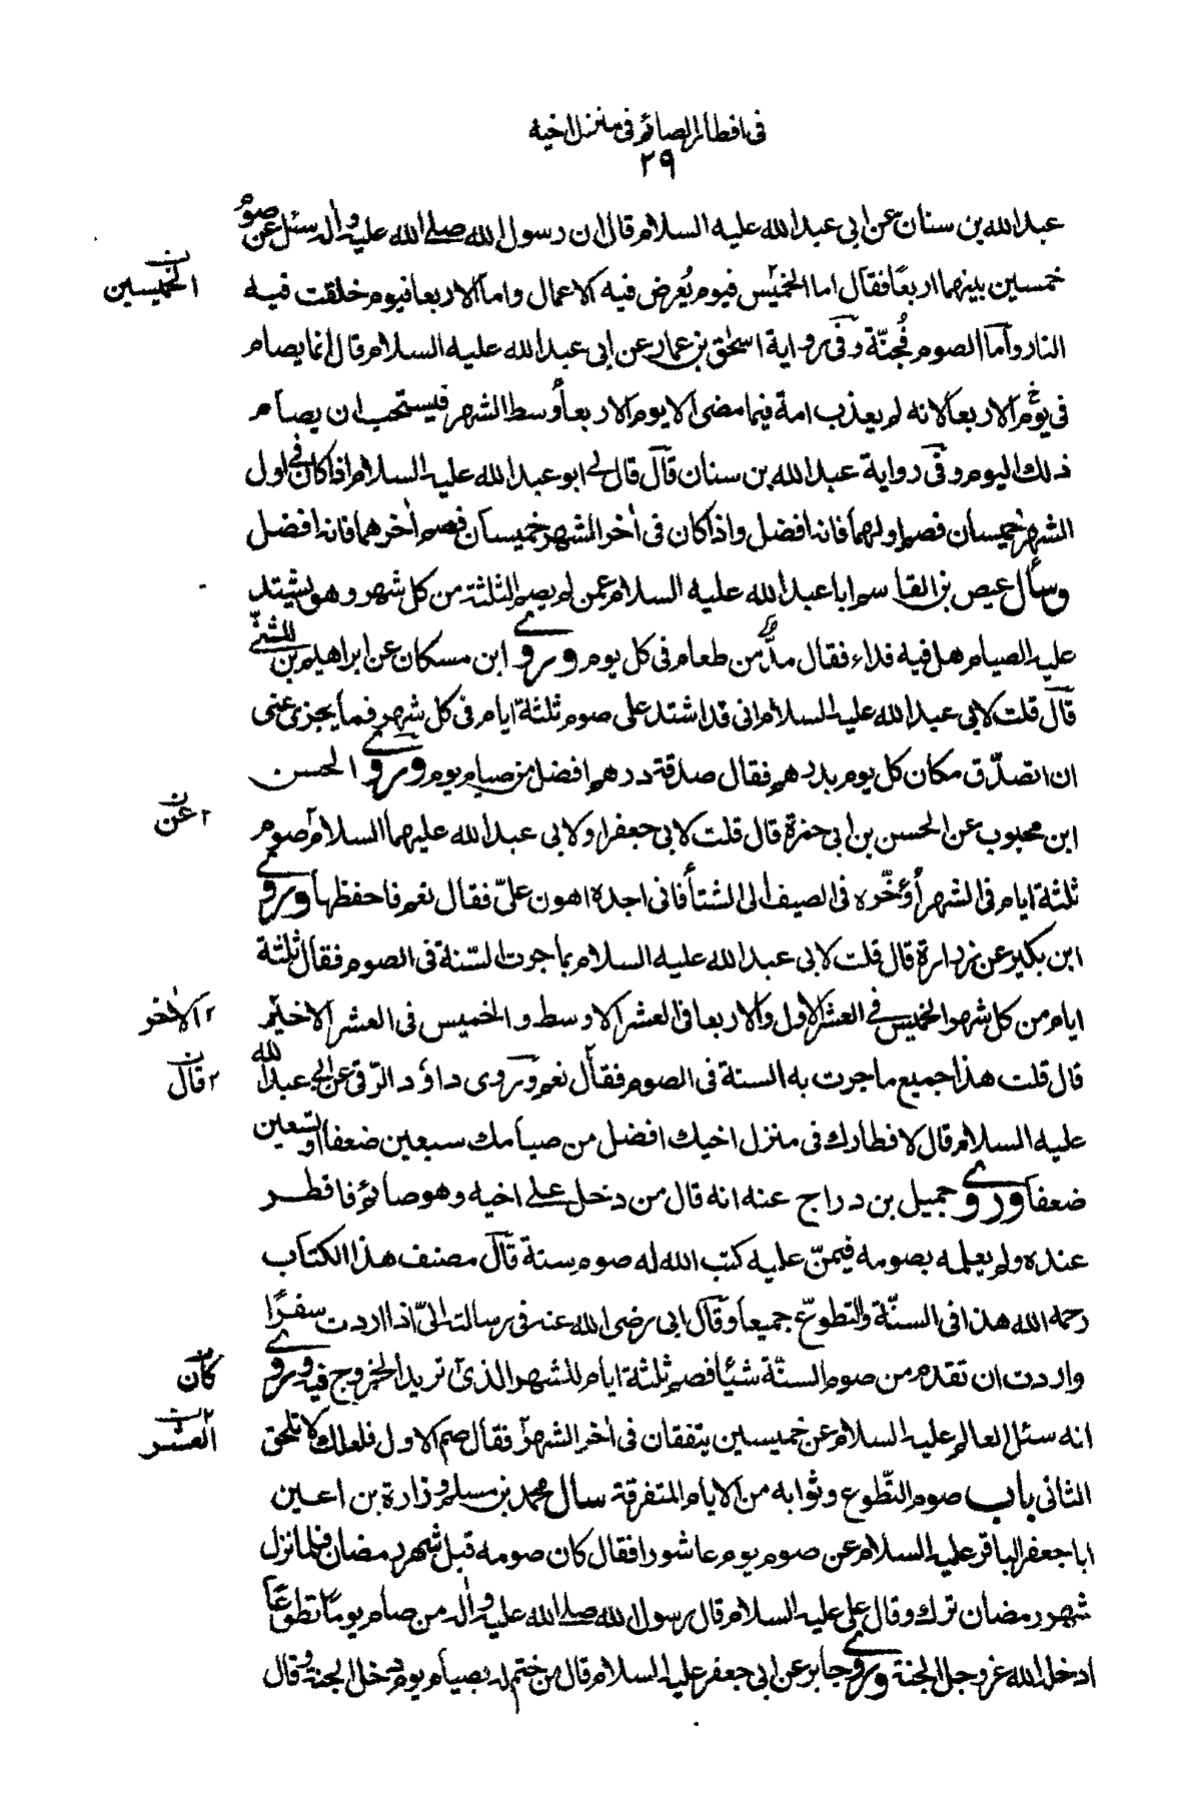 فى افطار الصائم فى منزل اخيه
٢٩
عبد الله بن سنان عن ابى عبد الله عليه السلام قال ان رسول الله صلى الله عليه واله سئل عن صوم
خمسين بينهما اربعا فقال اما الخميس فيوم يُعرض فيه الاعمال واما الاربعا فيوم خلقت فيه
الخميسين
النار واما الصوم فُجنّة وفى رواية اسحٰق بن عمار عن ابى عبد الله عليه السلام قال انما يصام
فى يوم الاربعا لانه لم يعذب امة فيما مضى الا يوم الاربعا وسط الشهر فيستحب ان يصام
ذلك اليوم وفى رواية عبد الله بن سنان قال قال لى ابو عبد الله عليه السلام اذا كان فى اول
الشهر خميسان فصم اولهما فانه افضل واذا كان فى اٰخر الشهر خميسان فصم اٰخرهما فانه افضل
وسأل عيص بن القاسم ابا عبد الله عليه السلام عمن لم يصم الثلثة من كل شهر وهو يشتد
عليه الصيام هل فيه فداء فقال مدٌّ من طعام فى كل يوم وروى ابن مسكان عن ابراهيم بن المثنى
قال قلت لابى عبد الله عليه السلام انى قد اشتد على صوم ثلثة ايام فى كل شهر فما يجزى عنى
ان اتصدّق مكان كل يوم بدرهم فقال صدقة درهم افضل من صيام يوم وروى الحسن
ابن محبوب عن الحسن بن ابى حمزة قال قلت لابى جعفر او لابى عبد الله عليهما السلام صوم
٢ عن
ثلثة ايام فى الشهر أؤخّره فى الصيف الى الشتأ فانى اجده اهون علىّ فقال نعم فاحفظها وروى
ابن بكير عن زرارة قال قلت لابى عبد الله عليه السلام بما جرت السّنة فى الصوم فقال ثلثة
ايام من كل شهر الخميس فى العشر الاول والاربعا فى العشر الاوسط والخميس فى العشر الاخير
٢ الاٰخر
قال قلت هذا جميع ما جرت به السنة فى الصوم فقال نعم وروى داؤد الرّقى عن ابى عبد الله
٢ قال
عليه السلام قال لافطارك فى منزل اخيك افضل من صيامك سبعين ضعفا او تسعين
ضعفا وروى جميل بن دراج عنه انه قال من دخل على اخيه وهو صائم فافطر
عنده ولم يعلمه بصومه فيمنّ عليه كتب الله له صوم سنة قال مصنف هذا الكتاب
رحمه الله هذا فى السنّة والتطوّع جميعا وقال ابى رضى الله عنه فى رسالته الىّ اذا اردت سفرًا
واردت ان تقدم من صوم السنّة شيأ فصم ثلثة ايام للشهر الذى تريد الخروج فيه وروى
كان
انه سئل العالم عليه السلام عن خميسين يتفقان فى اٰخر الشهر فقال صم الاول فلعلك لا تلحق
٢ العشر
الثانى باب صوم التّطوع وثوابه من الايام المتفرقة سأل محمد بن مسلم وزرارة بن اعين
ابا جعفر الباقر عليه السلام عن صوم يوم عاشورا فقال كان صومه قبل شهر رمضان فلما نزل
شهر رمضان ترك وقال على عليه السلام قال رسول الله صلى الله عليه واٰله من صام يومًا تطوعًا
ادخله الله عز وجل الجنة وروى جابر عن ابى جعفر عليه السلام قال من ختم له بصيام يوم دخل الجنة وقال